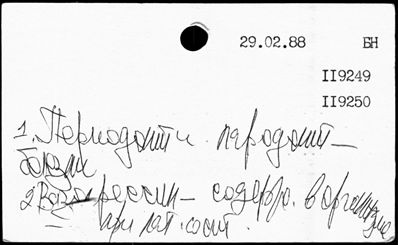 29.02.88 БН
II9249
II9250
1. Периодонт и пародонт-
болезни
2 Вазопрессин - содерж. в организме
при пат. сост.